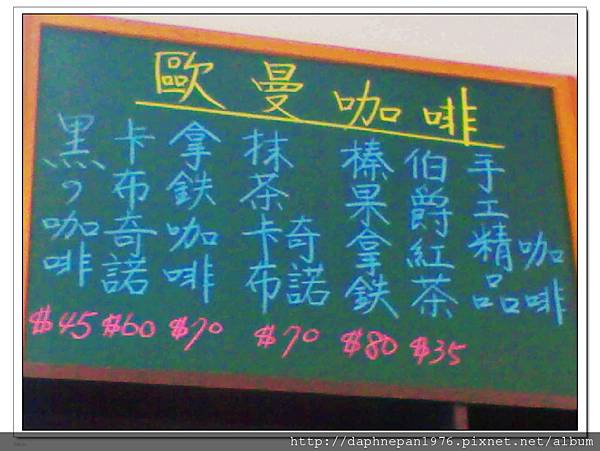 歐曼咖啡
黑の咖啡
$45
卡布奇諾
$60
拿鉄咖啡
$70
抹茶卡布奇諾
$70
榛果拿鉄
$80
伯爵紅茶
$35
手工精品咖啡
http://daphnepan1976.pixnet.net/album